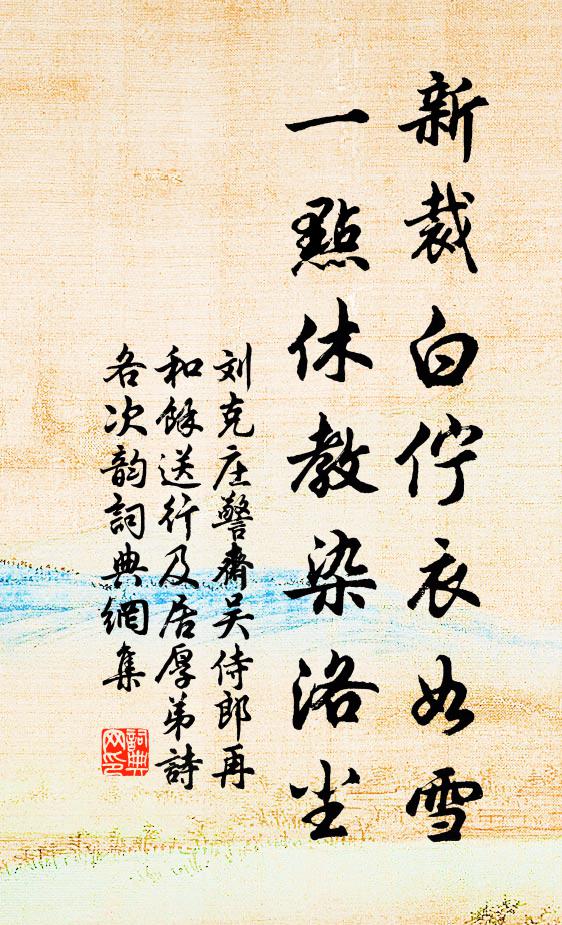 新裁白佇衣如雪
一點休教染洛尘
刘克庄警齋吴侍郎再
和餘送行及居厚弟詩
各次韵詞典網集
詞典
网印